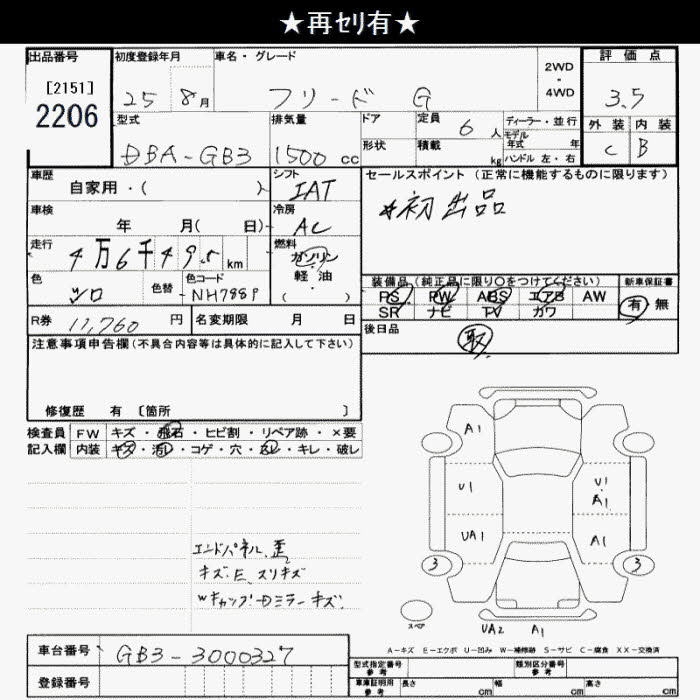 ★再セリ有★
出品番号 初度登録年月 車名・グレード 2WD・4WD 評価点
[2151]
2206
25 8月 フリード G 3.5
型式 排気量 ドア 定員 6人 ディーラー・並行 外装 内装
モデル年式 年
DBA-GB3 1500cc 形状 積載 kg ハンドル 左・右 C B
車歴 シフト セールスポイント (正常に機能するものに限ります)
自家用・( ) IAT
*初出品
車検 冷房
年 月( 日) AC
走行 燃料
4万6千49 km ガソリン
軽油
( )
色 色替 色コード 装備品 (純正品に限り○をつけてください) 新車保証書
シロ NH788P PS PW ABS エアB AW 有 無
SR ナビ TV カワ
R券 11,760円 名変期限 月 日 後日品
取
注意事項申告欄 (不具合内容等は具体的に記入して下さい)
修復歴 有 [箇所 ]
検査員 FW キズ・飛石・ヒビ割・リペア跡・×要
記入欄 内装 キズ・汚レ・コゲ・穴・スレ・キレ・破レ
エンドパネル歪
キズ.E.スリキズ
Wキャップ・Dミラーキズ
A1
U1 U1
A1
UA1 A1
3 3
スペア
UA2 A1
A-キズ E-エクボ U-凹み W-補修跡 S-サビ C-腐食 XX-交換済
車台番号 GB3-3000327
型式指定番号 参考 類別区分番号 参考
登録番号 車庫証明用 参考 長さ cm 幅 cm 高さ cm